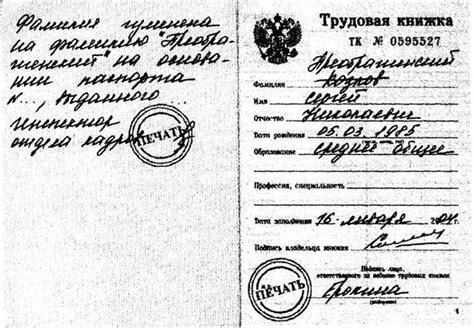 Фамилия изменена
на фамилию "Преобра-
женский" на основа-
нии паспорта
№..., выданного...
Инспектор
отдела кадров
ПЕЧАТЬ
Трудовая книжка
ТК № 0595527
Преображенский
Фамилия Козлов
Имя Сергей
Отчество Николаевич
Дата рождения 05.03.1985
Образование среднее общее
Профессия, специальность
Дата заполнения 16 января 2004 г.
Подпись владельца книжки
Подпись лица,
ответственного за ведение трудовых книжек
ПЕЧАТЬ
Ерохина
(разборчиво)
1